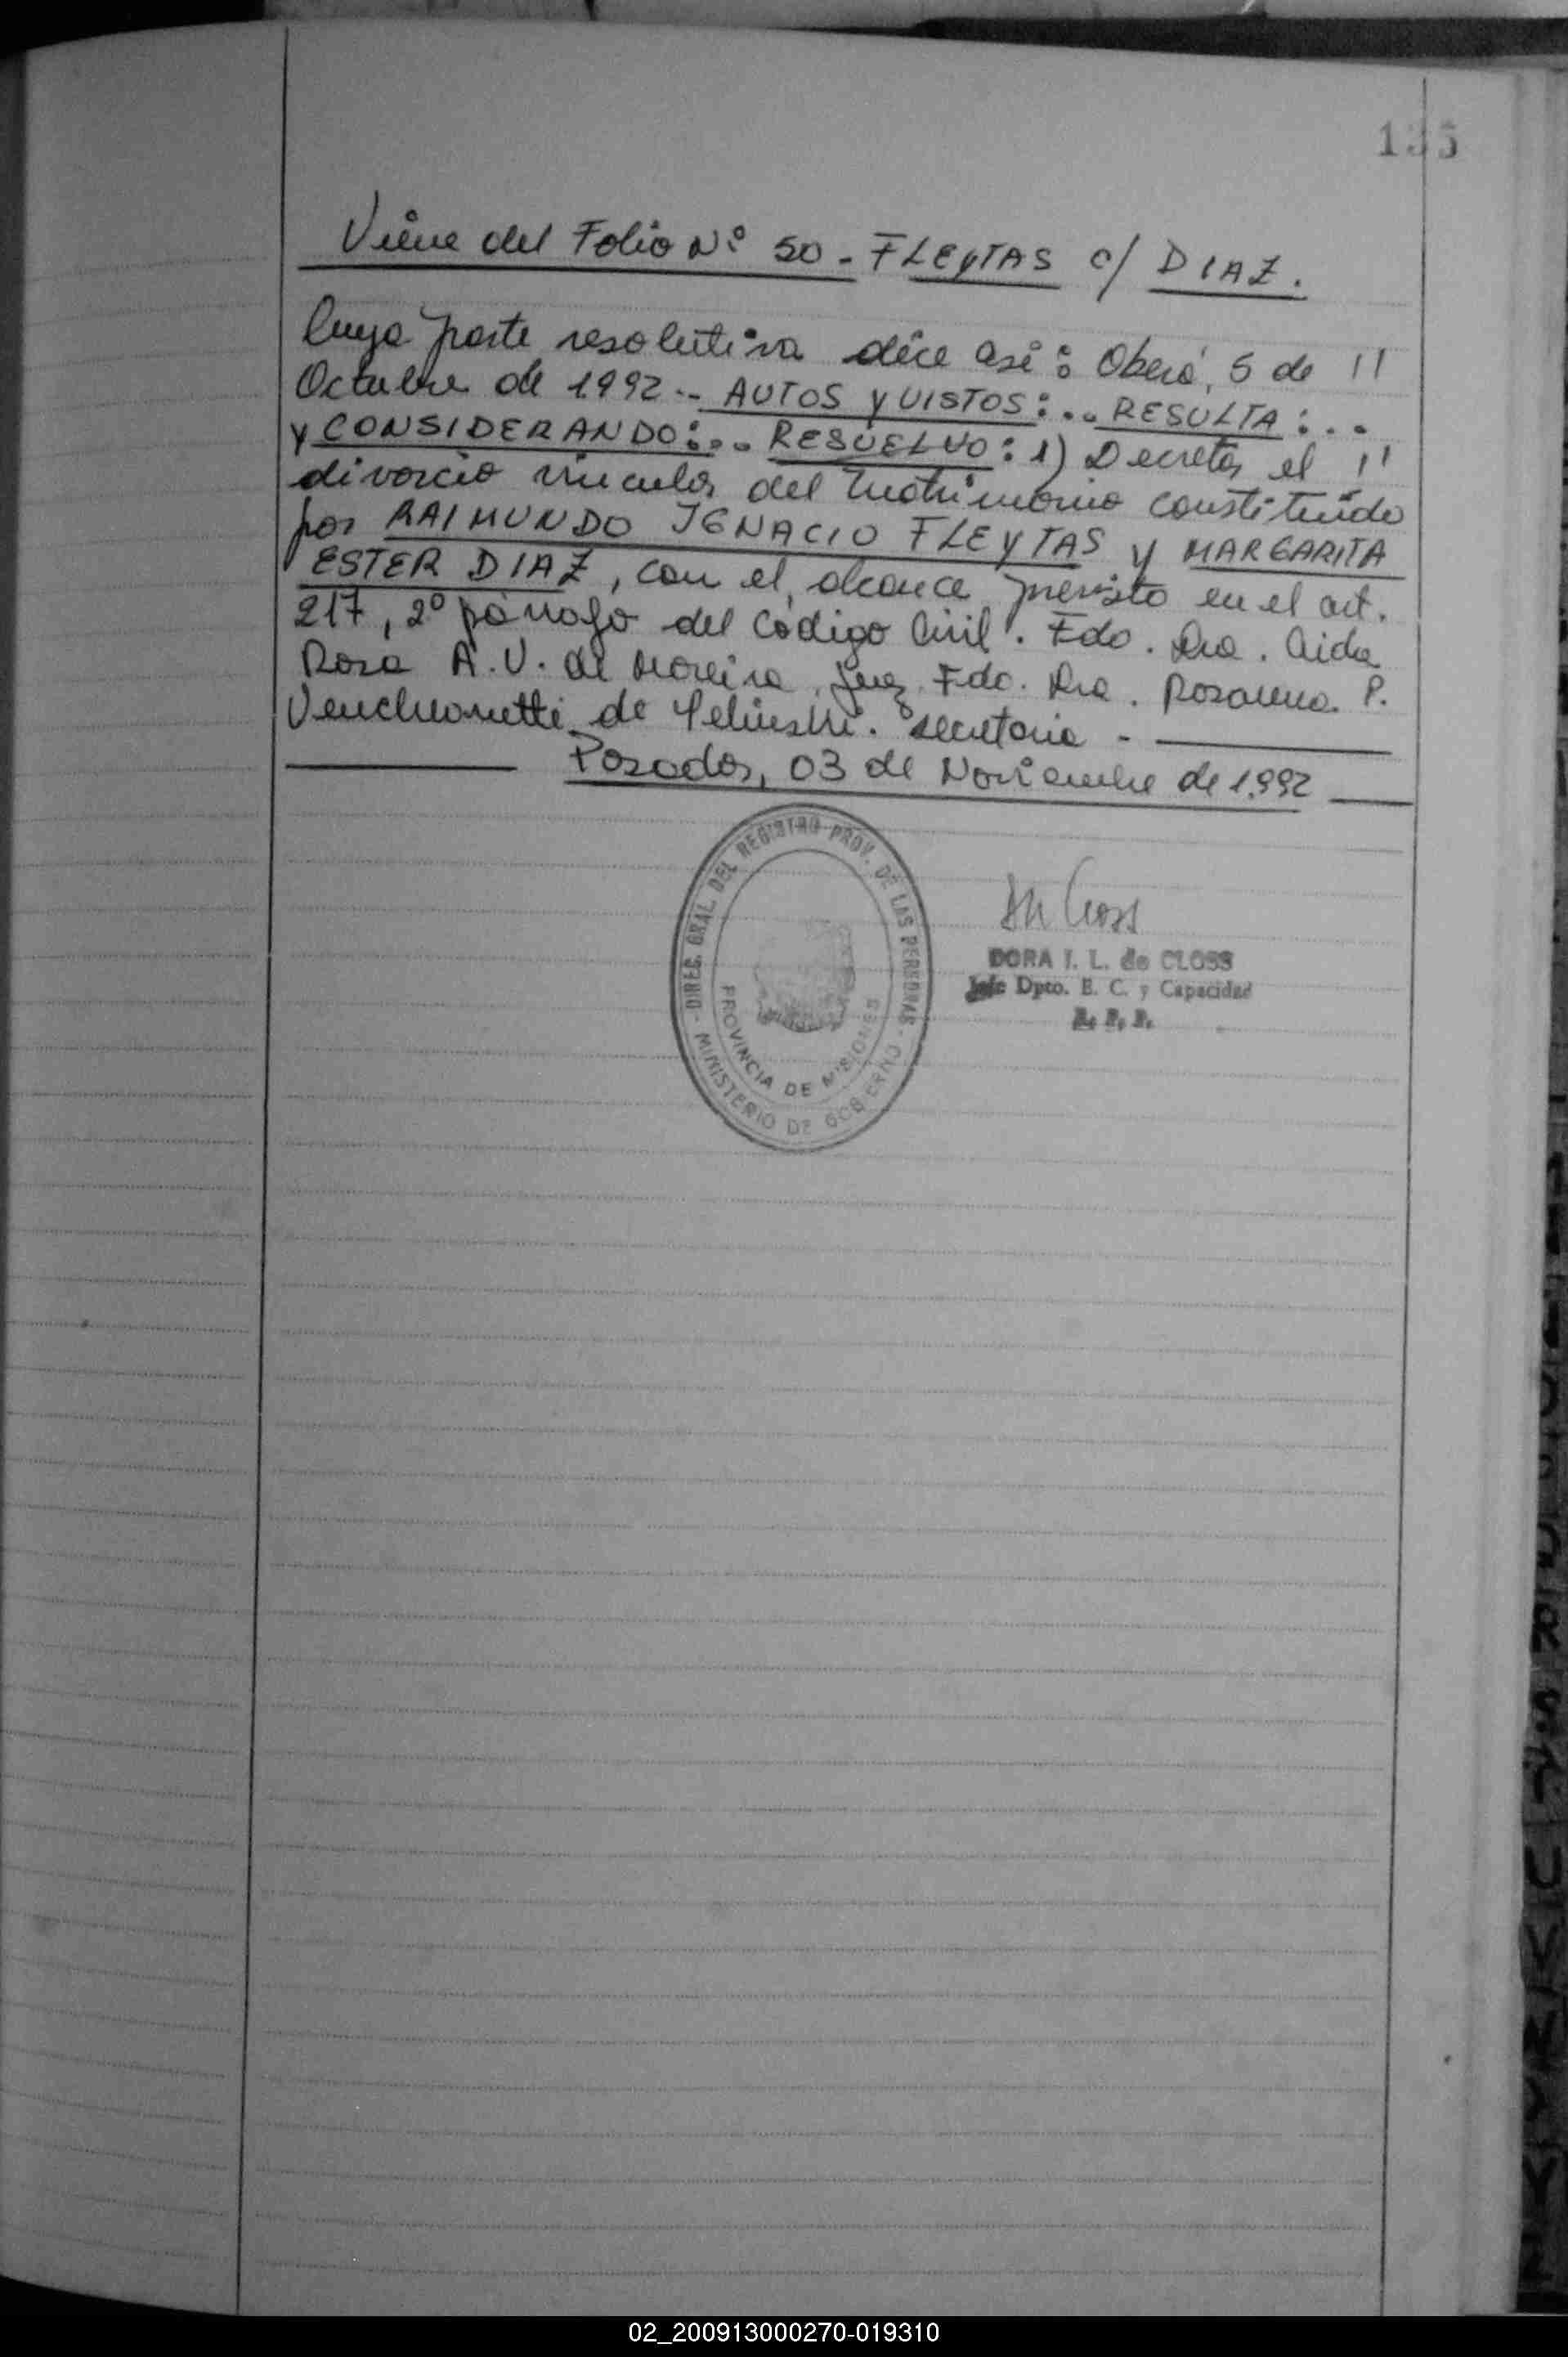 135
Viene del Folio Nº 50 - FLEYTAS c/ DIAZ.
Cuya parte resolutiva dice así: Oberá, 5 de //
Octubre de 1992.- AUTOS y VISTOS:... RESULTA:...
y CONSIDERANDO:... RESUELVO: 1) Decretar el //
divorcio vincular del matrimonio constituído
por RAIMUNDO IGNACIO FLEYTAS y MARGARITA
ESTER DIAZ, con el alcance previsto en el art.
217, 2º párrafo del Código Civil. Fdo. Dra. Aida
Rosa A.V. de Moreira, Juez. Fdo. Dra. Rosanna P.
de secretaria -
Posadas, 03 de Noviembre de 1992
- DIREC. GRAL. DEL REGISTRO PROV. DE LAS PERSONAS -
MINISTERIO DE GOBIERNO
PROVINCIA DE MISIONES
DORA I. L. de CLOSS
Jefe Dpto. E. C. y Capacidad
R. P. P.
02_200913000270-019310